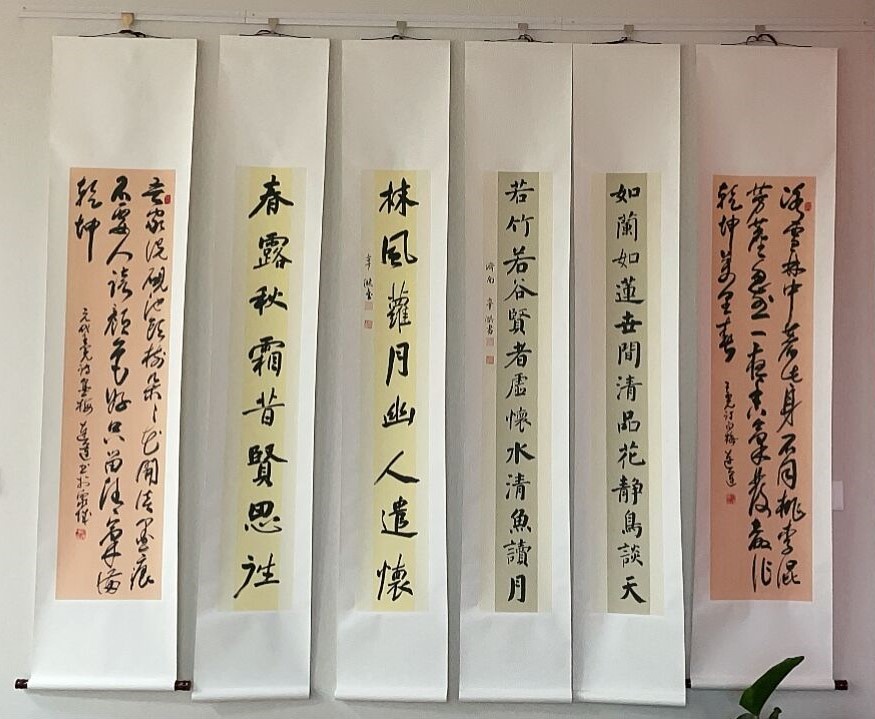 冰雪林中著此身不同桃李混
芳塵忽然一夜清香發散作
乾坤萬里春
王冕詩白梅
如蘭如蓮世間清品花靜鳥談天
若竹若谷賢者虛懷水清魚讀月
濟南 辛洪書
林風蘿月幽人遣懷
辛洪書
春露秋霜昔賢思往
吾家洗硯池頭樹朵々花開淡墨痕
不要人誇顏色好只留清氣滿
乾坤
元代王冕詩墨梅